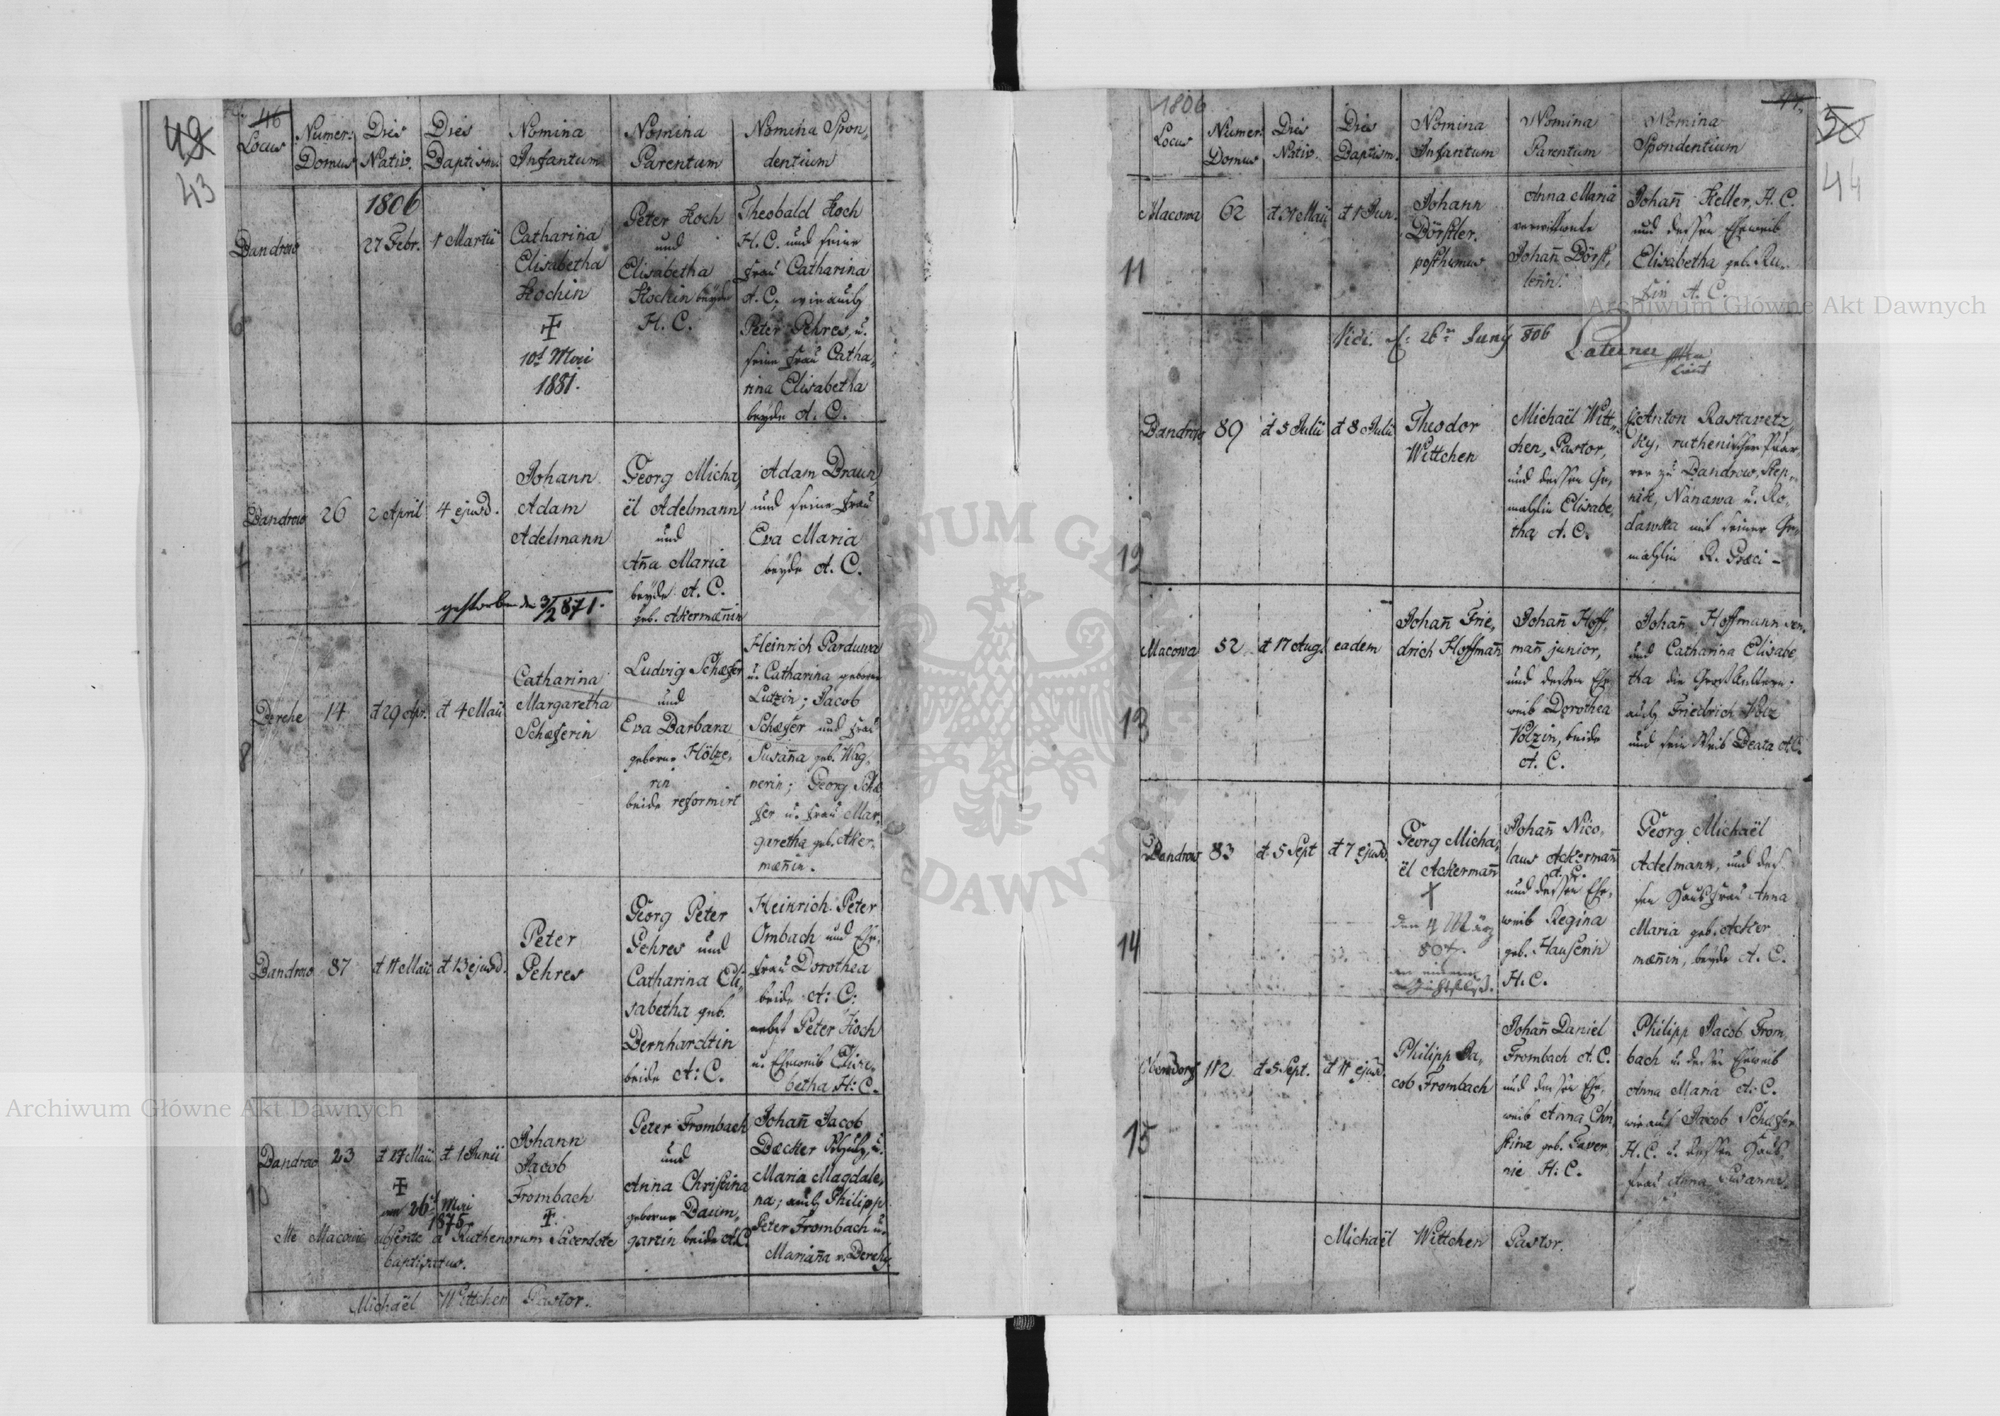 49
43
46
Locus
Numer. Domus
Dies Nativ.
Dies Baptismi
Nomina Infantum
Nomina Parentum
Nomina Spon-
dentium
Bandrow
1806
27 Febr.
1 Martii
Catharina
Elisabetha
Kochin
10t Mai
1881.
Peter Koch
und
Elisabetha
Kochin beyde
H. C.
Theobald Koch
H. C. und seine
Frau Catharina
A. C. wie auch
Peter Pehres, u.
seine Frau Catha-
rina Elisabetha
beyde A. C.
6
Bandrow
26
2 April
4 ejusd.
Johann
Adam
Adelmann
gestorben den 3/2 871.
Georg Micha-
ël Adelmann
und
Ana Maria
beyde A. C.
geb. Akermänin
Adam Braun
und seine Frau
Eva Maria
beyde A. C.
7
Berehe
14
d 29 Apr.
d 4 Maii
Catharina
Margaretha
Schæferin
Ludvig Schæfer
und
Eva Barbara
geborne Hölze-
rin
beide reformirt
Heinrich Parduwa
u. Catharina geborne
Lutzin; Jacob
Schæfer und Frau
Susana geb. Wag-
nerin; Georg Schæ-
fer u. Frau Mar-
garetha geb. Aker-
mænin.
8
Bandrow
87
d 11 Maii
d 13 ejusd.
Peter
Pehres
Georg Peter
Pehres und
Catharina Eli-
sabetha geb.
Bernhardtin
beide A: C.
Heinrich Peter
Ombach und Ehe-
frau Dorothea
beide A: C:
nebst Peter Koch
u. Eheweib Elisa-
betha H: C.
Bandrow
23
d 27 Maii
d 1 Junii
am 26t Mai
1875
Johann
Jacob
Frombach
Peter Frombach
und
Anna Christina
geborne Baum-
gartin beide A.C.
Johan Jacob
Bæcker Schulz, u.
Maria Magdale-
na; auch Philipp
Peter Frombach u.
Mariana v. Berehy.
10
Me Macoviae absente a Ruthenorum Sacerdote
baptisatus.
Michaël Wittchen Pastor.
1806
50
44
Locus
Numer. Domus
Dies Nativ.
Dies Baptism.
Nomina Infantum
Nomina Parentum
Nomina
Spondentium
Macowa
62
d 31 Maii
d 1 Jun.
Johann
Dörstler.
posthumus
Anna Maria
verwittwete
Johan Dörst-
lerin.
Johan Keller, H. C.
und dessen Eheweib
Elisabetha geb. Ru-
fin A. C.
11
Vidi. d: 26n Juny 806
Bandrow
89
d 5 Julii
d 8 Julii
Theodor
Wittchen
Michaël Witt-
chen, Pastor,
und dessen Ge-
mahlin Elisabe-
tha A. C.
Anton Rastawetz-
ky, ruthenischer Pfar-
rer zu Bandrow, Step-
nik, Nanawa u. Ro-
dawka mit seiner Ge-
mahlin R. Græci -
12
Macowa
52
d 17 Aug.
eadem
Johan Frie-
drich Hoffman
Johan Hoff-
man junior,
und dessen Ehe-
weib Dorothea
Volzin, beide
A. C.
Johan Hoffmann sen.
und Catharina Elisabe-
tha die Großeltern;
auch Friedrich Volz
und sein Weib Beata A.C.
13
Bandrow
83
d 5 Sept
d 7 ejusd.
Georg Micha-
ël Ackerman
den 4 März
807.
an einem
Johan Nico-
laus Ackerman
A. C.
und dessen Ehe-
weib Regina
geb. Hausenin
H. C.
Georg Michaël
Adelmann, und des-
sen Hausfrau Anna
Maria geb. Acker
mænin, beyde A. C.
14
Oberndorf
112
d 5 Sept.
d 11 ejusd.
Philipp Ja-
cob Frombach
Johan Daniel
Frombach A. C.
und dessen Ehe-
weib Anna Chri-
stina geb. Taver-
nie H: C.
Philipp Jacob From-
bach u. dessen Eheweib
Anna Maria A: C.
wie auch Jacob Schæfer
H. C. u. dessen Haus-
frau Anna Susanna.
15
Michaël Wittchen Pastor.
Archiwum Główne Akt Dawnych
Archiwum Główne Akt Dawnych